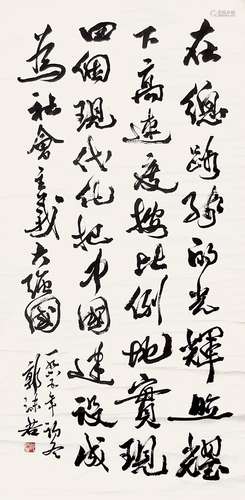 在總路線的光輝照耀
下高速度按比例地實現
四個現代化把中國建設成
為社會主義大強國
一九六五年初冬
郭沫若